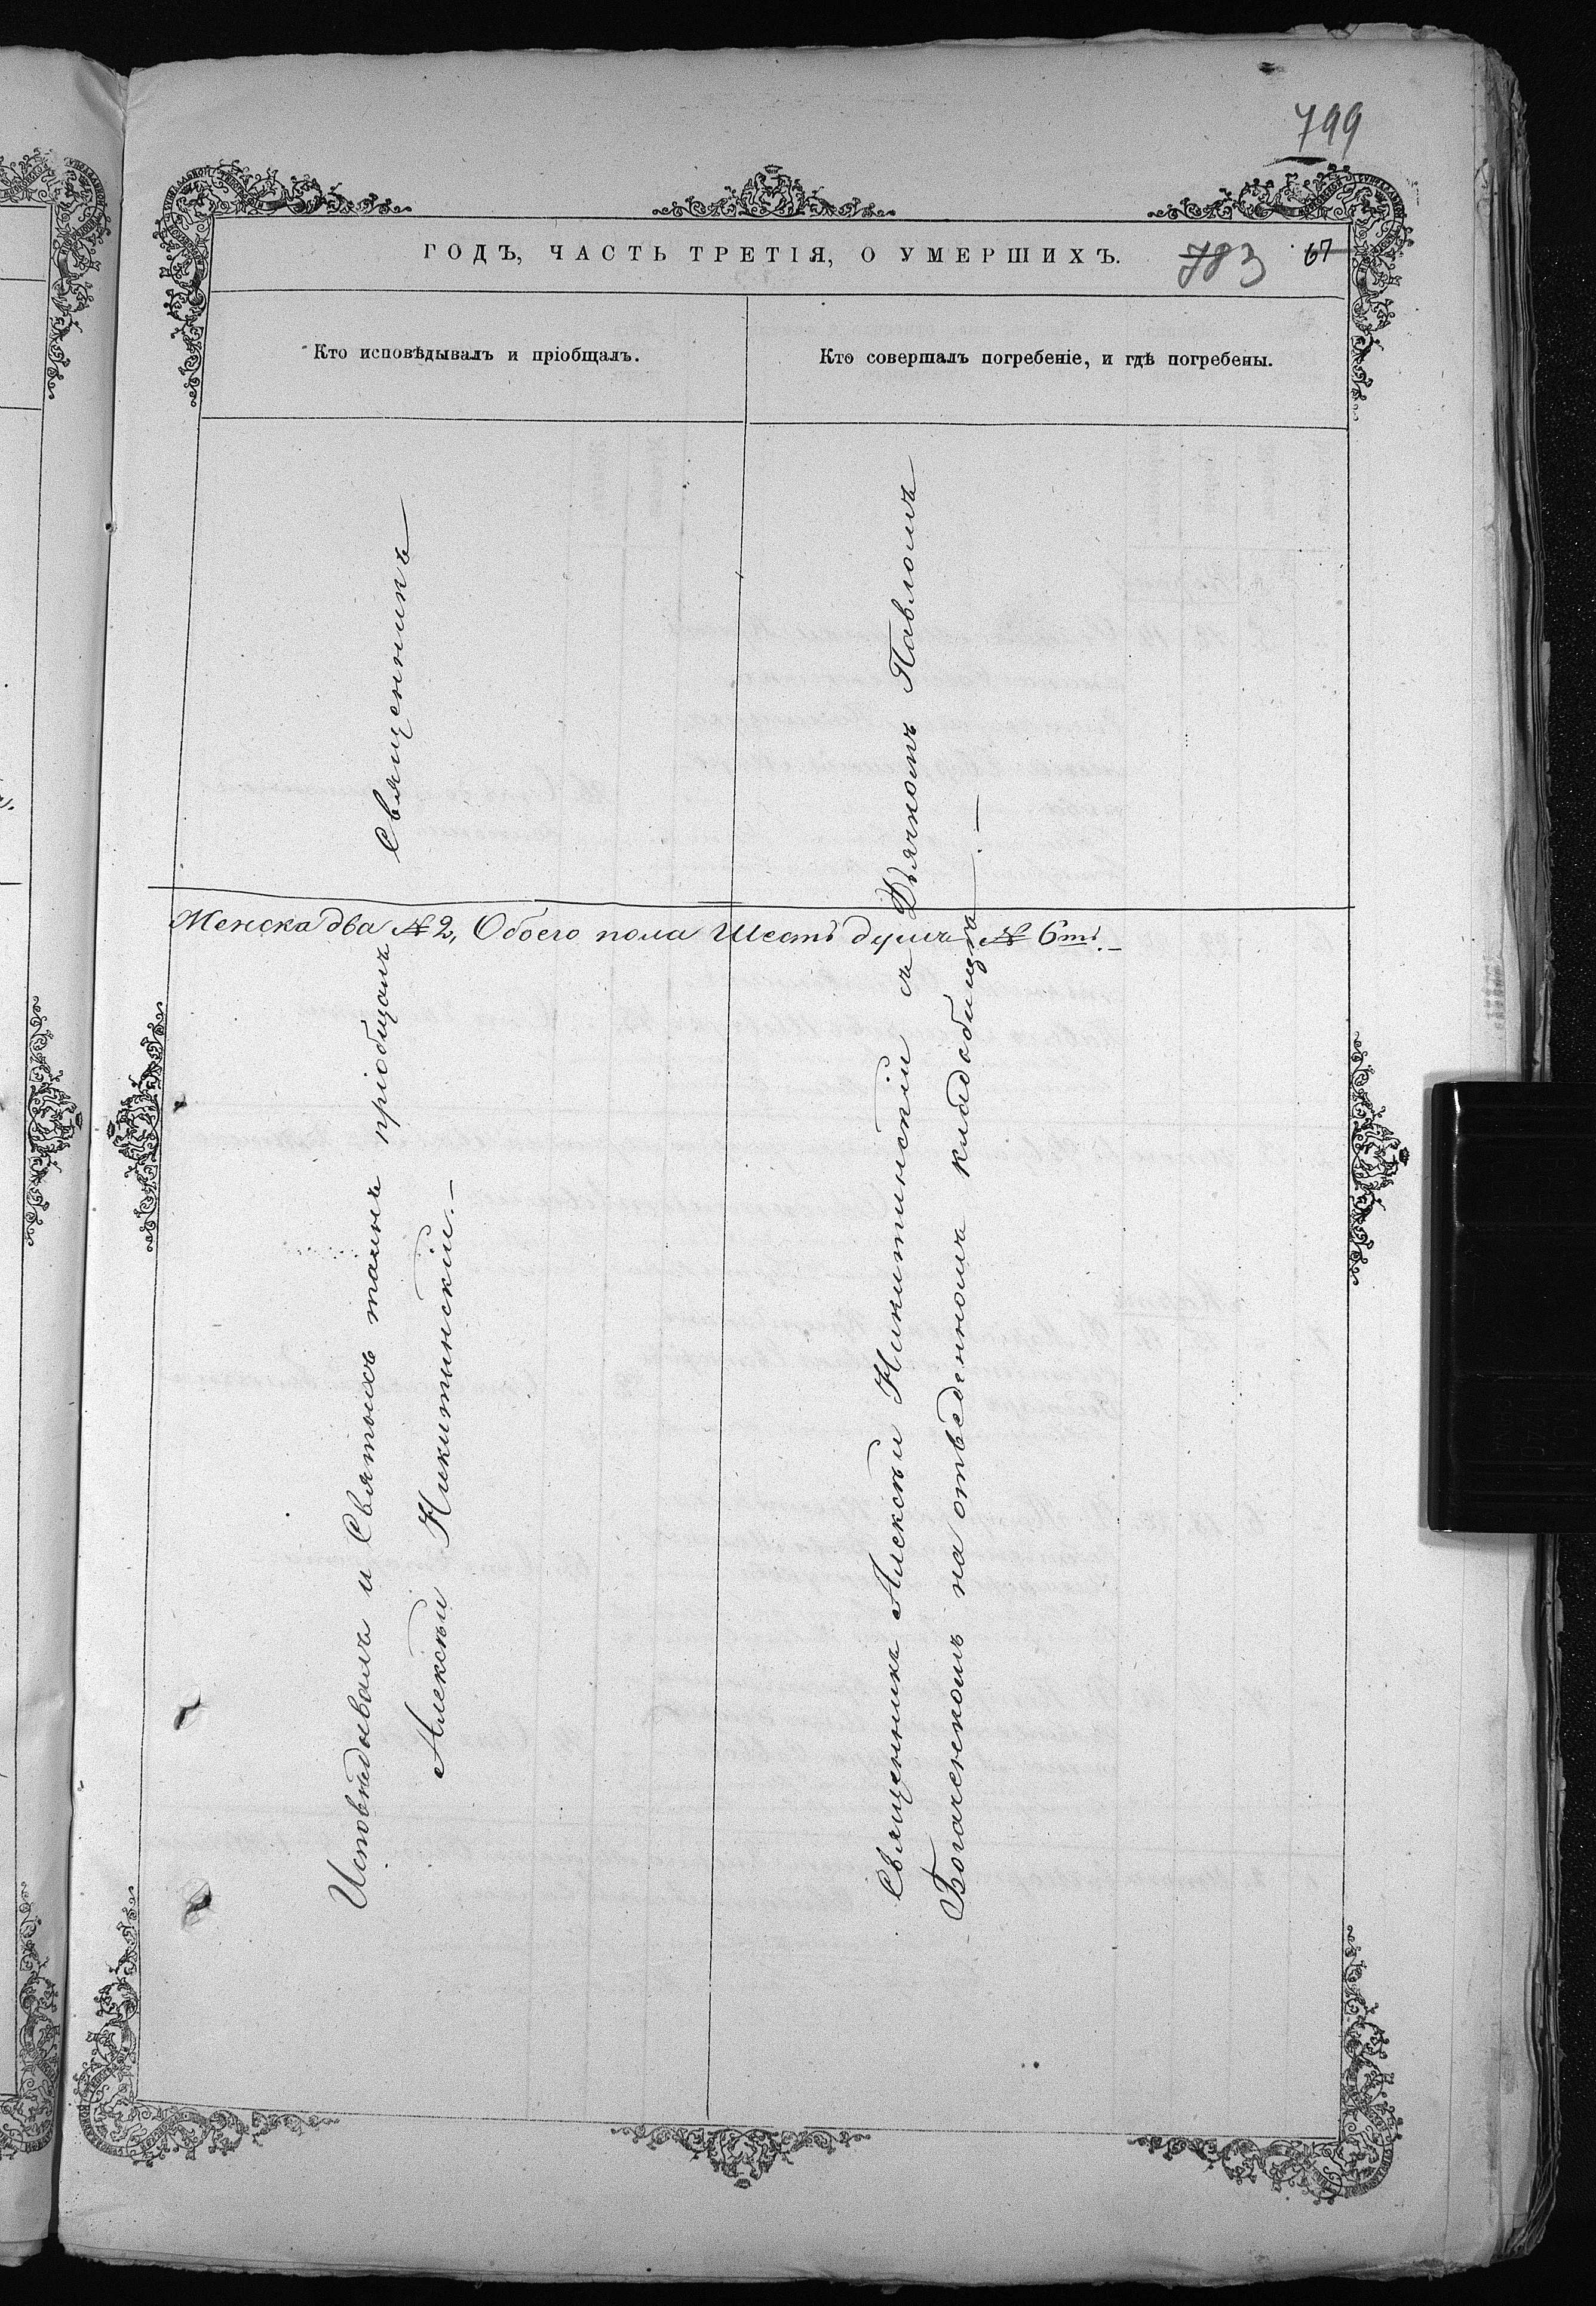 799
ГОДЪ, ЧАСТЬ ТРЕТІЯ, О УМЕРШИХЪ.
783
67
Кто исповѣдывалъ и пріобщалъ.
Кто совершалъ погребеніе, и гдѣ погребены.
Исповѣдывалъ и Святыхъ таинъ пріобщалъ Священникъ
Алексѣй Никитинскій.—
Женска два № 2, Обоего пола Шесть душъ № 6ть.—
Священникъ Алексѣй Никитинскій съ Дьячкомъ Павломъ
Богаченкомъ на отведенномъ кладбищѣ.—